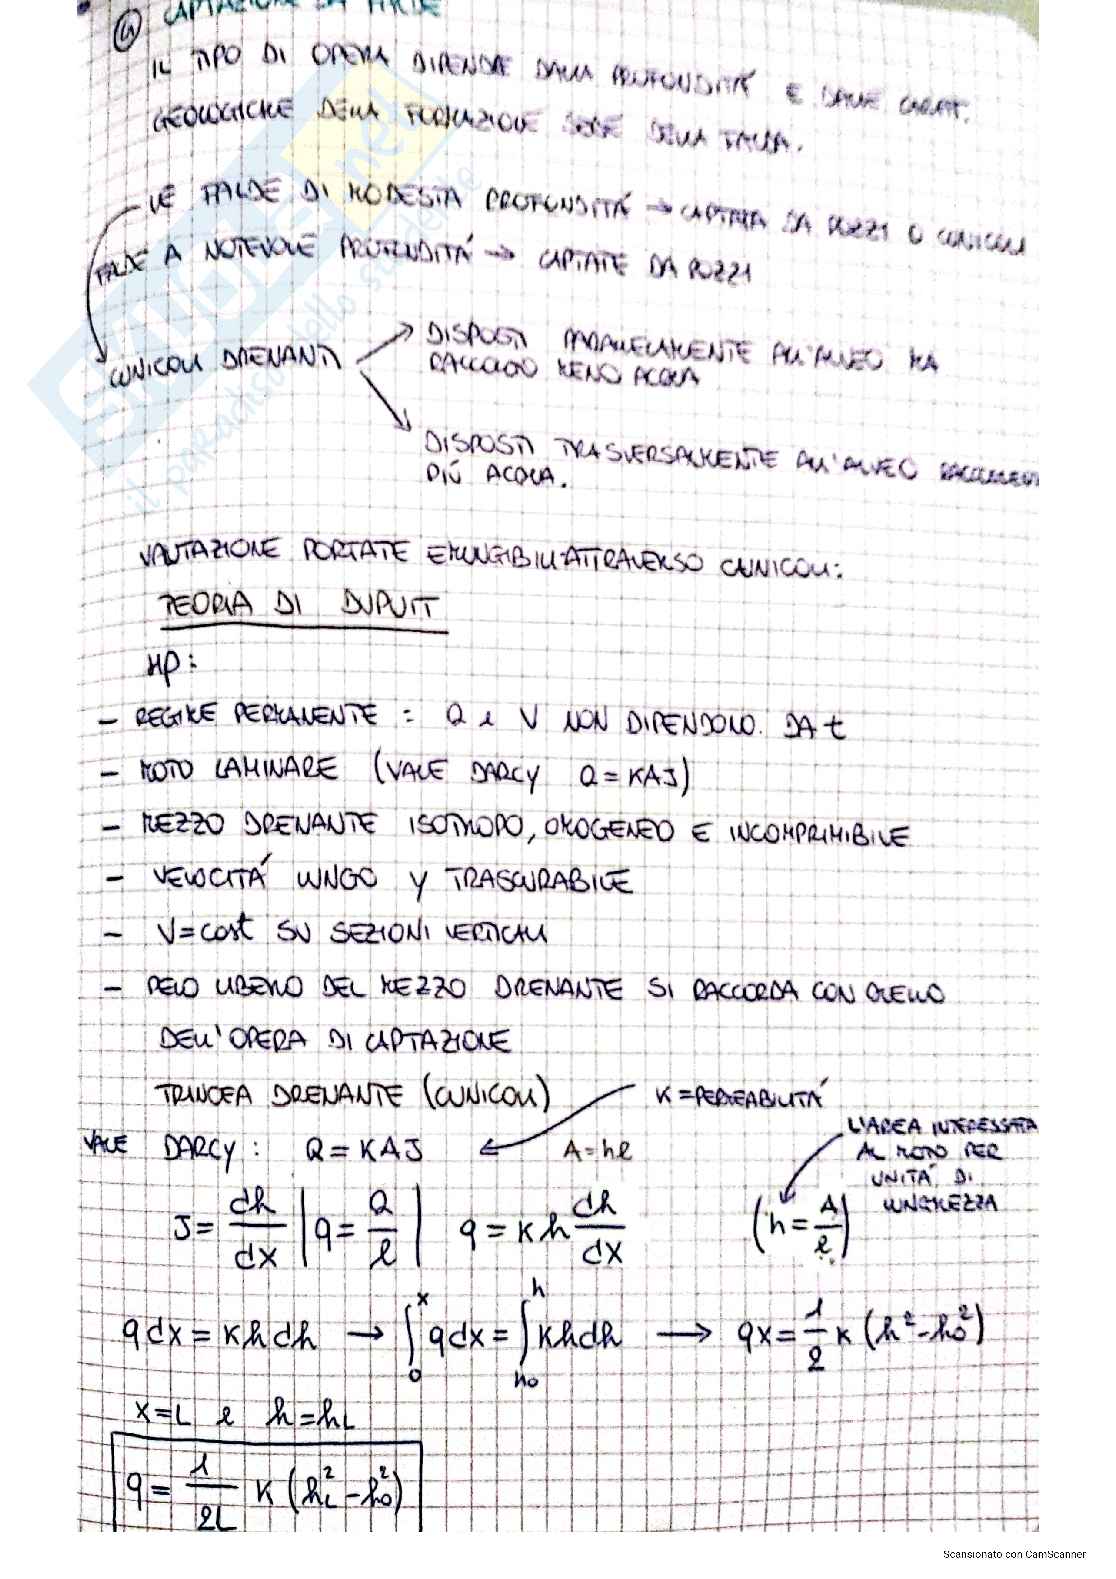 ④ CAPTAZIONE DA FALDE
IL TIPO DI OPERA DIPENDE DALLA PROFONDITÁ E DALLE CARATT.
GEOLOGICHE DELLA FORMAZIONE SEDE DELLA FALDA.
LE FALDE DI MODESTA PROFONDITÁ → CAPTATA DA POZZI O CUNICOLI
FALDE A NOTEVOLE PROFONDITÁ → CAPTATE DA POZZI
CUNICOLI DRENANTI
DISPOSTI PARALLELAMENTE ALL'ALVEO MA
RACCOLGO MENO ACQUA
DISPOSTI TRASVERSALMENTE ALL'ALVEO
PIÚ ACQUA.
VALUTAZIONE PORTATE EMUNGIBILI ATTRAVERSO CUNICOLI:
TEORIA DI DUPUIT
HP:
- REGIME PERMANENTE = Q e V NON DIPENDONO DA t
- MOTO LAMINARE (VALE DARCY Q = KAJ)
- MEZZO DRENANTE ISOTROPO, OMOGENEO E INCOMPRIMIBILE
- VELOCITÁ LUNGO Y TRASCURABILE
- V=cost SU SEZIONI VERTICALI
- PELO LIBERO DEL MEZZO DRENANTE SI RACCORDA CON QUELLO
DELL'OPERA DI CAPTAZIONE
TRINCEA DRENANTE (CUNICOLI) K = PERMEABILITÁ
VALE DARCY: Q = KAJ A = hl
L'AREA INTERESSATA
AL MOTO PER
UNITÁ DI
LUNGHEZZA
J = dh/dx | q = Q/l | q = K h dh/dx (h = A/l)
q dx = K h dh → ∫₀ˣ q dx = ∫ₕ₀ʰ K h dh → qx = 1/2 K (h² - h₀²)
X = L e h = hL
q = 1/2L K (hL² - h₀²)
SKUOLA.net
il paradiso dello studente
Scansionato con CamScanner